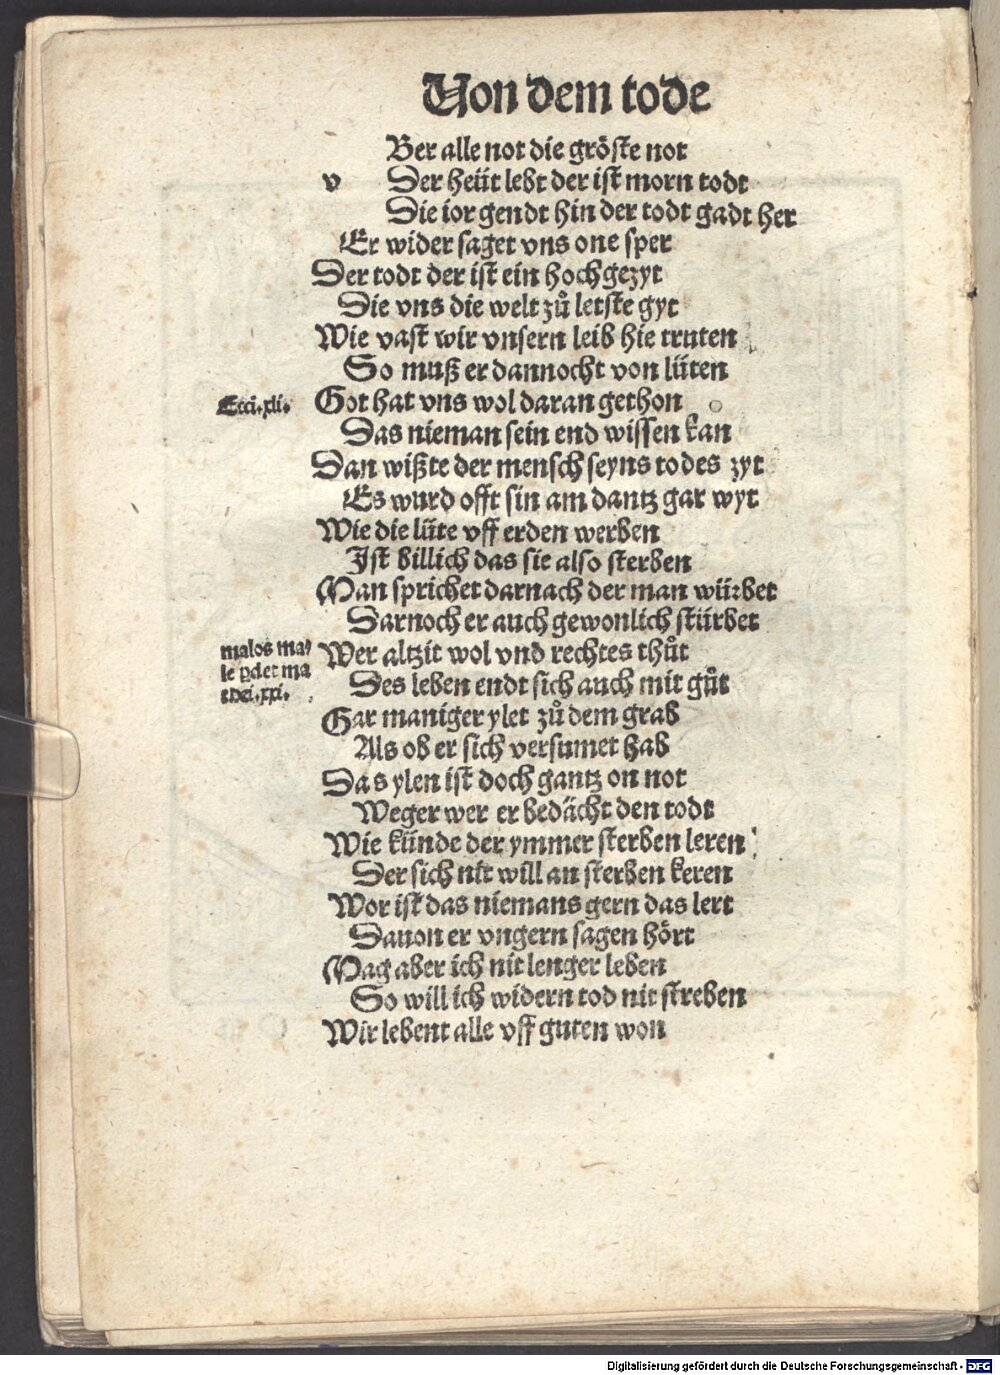 Von dem tode
Ber alle not die gröste not
v Der heüt lebt der ist morn todt
Die ior gendt hin der todt gadt her
Er wider saget vns one sper
Der todt der ist ein hochgezyt
Die vns die welt zů letste gyt
Wie vast wir vnsern leib hie truten
So muß er dannocht von lüten
Ecci.xli. Got hat vns wol daran gethon
Das nieman sein end wissen kan
Dan wißte der mensch seyns todes zyt
Es wurd offt sin am dantz gar wyt
Wie die lüte vff erden werben
Ist billich das sie also sterben
Man sprichet darnach der man würbet
Darnoch er auch gewonlich stürbet
malos ma⸗
le ꝑdet ma
thei.xxi.
Wer altzit wol vnd rechtes thůt
Des leben endt sich auch mit gůt
Gar maniger ylet zů dem grab
Als ob er sich versumet hab
Das ylen ist doch gantz on not
Weger wer er bedächt den todt
Wie künde der ymmer sterben leren
Der sich nit will an sterben keren
Wor ist das niemans gern das lert
Dauon er vngern sagen hört
Mag aber ich nit lenger leben
So will ich widern tod nit streben
Wir lebent alle vff guten won
Digitalisierung gefördert durch die Deutsche Forschungsgemeinschaft - DFG